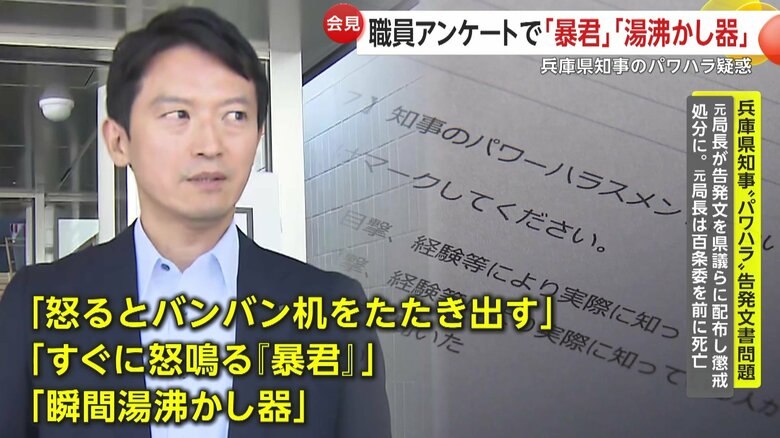 会見 職員アンケートで「暴君」「湯沸かし器」
兵庫県知事のパワハラ疑惑
兵庫県知事“パワハラ”告発文書問題
元局長が告発文を県議らに配布し懲戒
処分に。元局長は百条委を前に死亡
知事のパワーハラスメン
マークしてください。
目撃、経験等により実際に知っ
実際に知って
「怒るとバンバン机をたたき出す」
「すぐに怒鳴る『暴君』」
「瞬間湯沸かし器」